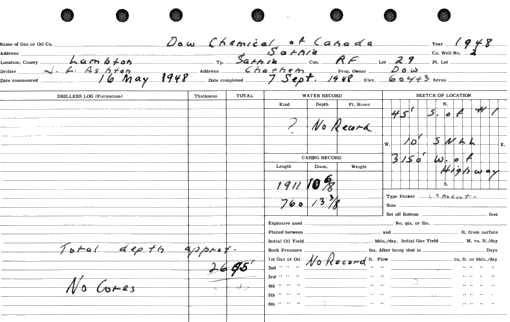 Name of Gas or Oil Co. Dow Chemical of Canada Year 1948
Address Sarnia Co. Well No. 2
Location, County Lambton Tp. Sarnia Con. RF Lot 29 Pt. Lot
Driller J. F. Ashton Address Chatham Prop. Owner Dow
Date commenced 16 May 1948 Date completed 7 Sept. 1948 Elev. Acres
DRILLERS LOG (Formation) Thickness TOTAL WATER RECORD SKETCH OF LOCATION
Kind Depth Ft. Rises N.
45' S. of #1
? No Record
W. 10' S N L L E.
CASING RECORD 3150' W. of
Length Diam. Weight Highway
S.
1911 10 6/8
Type Packer Cement
760 13 3/8
Size
Set off bottom feet
Explosive used No. qts. or lbs.
Placed between and ft. from surface
Initial Oil Yield bbls./day. Initial Gas Yield M. cu. ft./day
Total depth approx. Rock Pressure lbs. After being shut in Days
2695' 1st Gas or Oil No Record ft. Flow cu. ft. or bbls./day
2nd " " "
No Cores 3rd " " "
4th " " "
5th " " "
6th " " "